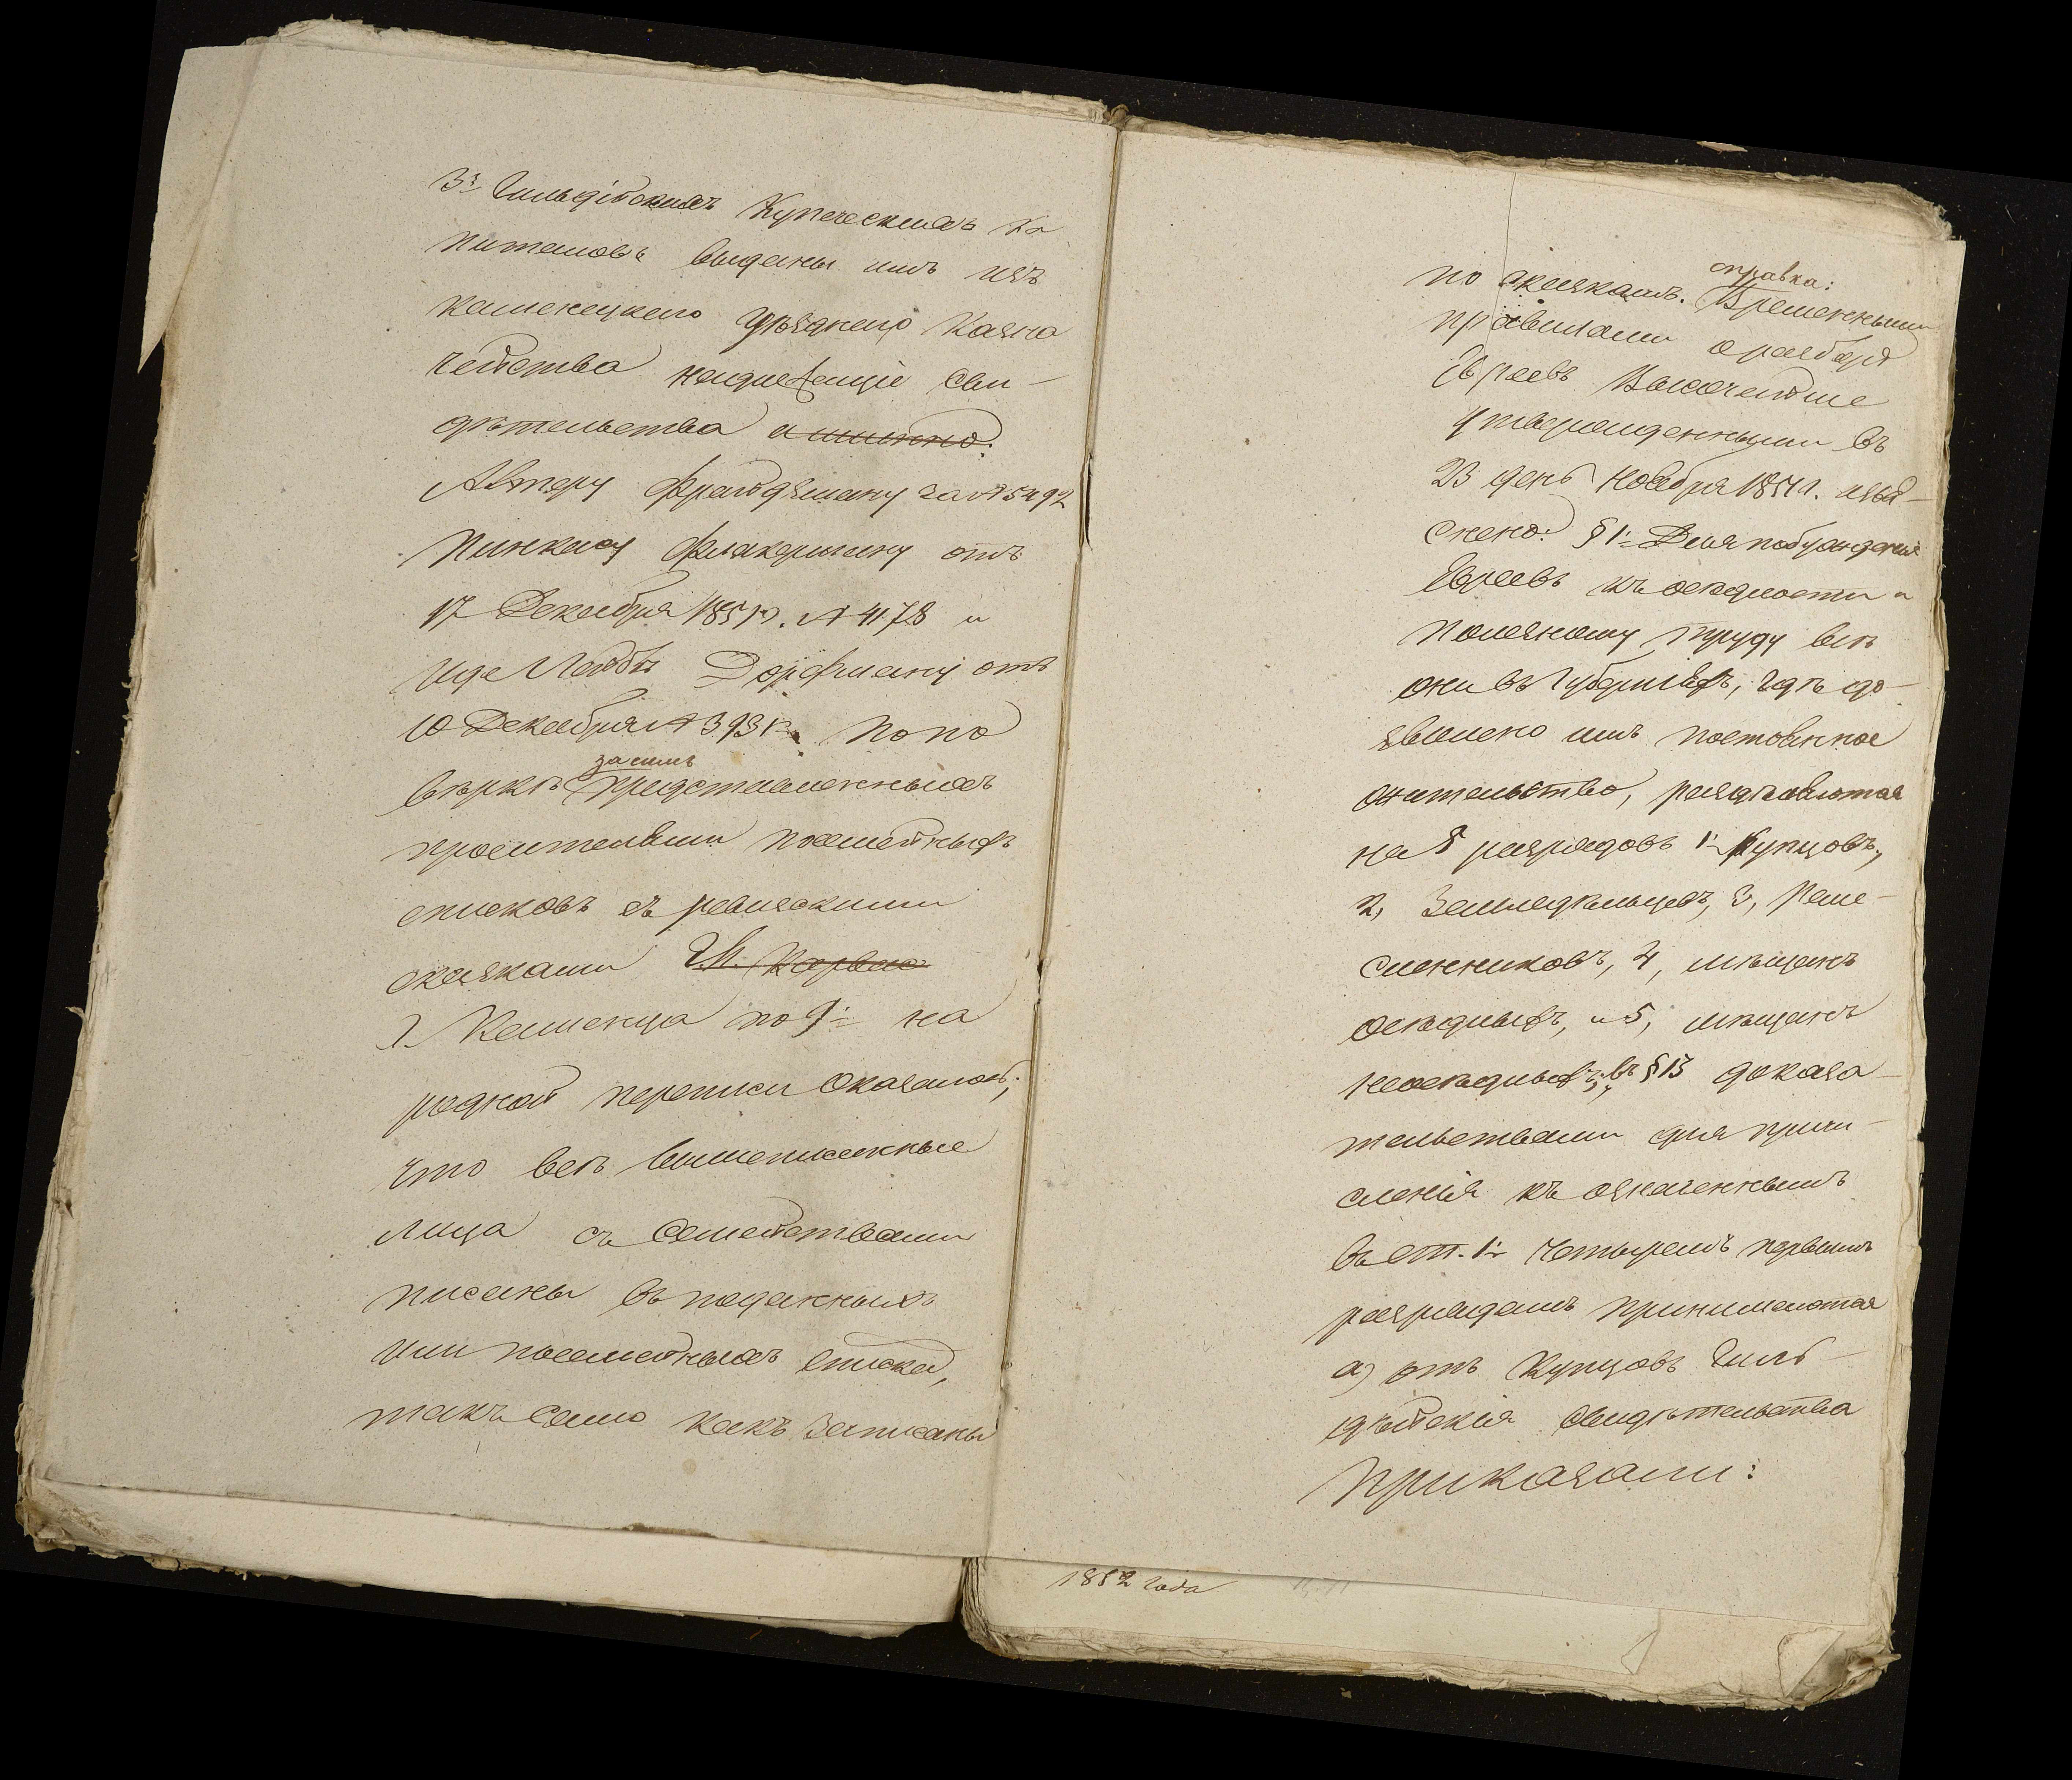 3й Гильдійскихъ Купеческихъ Ка
питаловъ выданы имъ изъ
Каменецкаго Уѣзднаго Казна
чейства надлежащіе сви-
дѣтельства а именно:
Автеру Фрайдзману за № 5492
Пинкасу Флакдману отъ
17 Декабря 1851 г. № 4178 и
Иде Лейбѣ Дорфману отъ
10 Декабря № 3931. По по
засимъ
вѣркѣ представленныхъ
просителями посемейныхъ
списковъ съ ревизскими
сказками
г. Каменца по 9й на
родной переписи оказалось;
что всѣ вышеписанные
лица съ Семействами
писаны въ поданныхъ
ими посемейныхъ списка,
такъ само какъ записаны
по сказкамъ. Временными
справка:
правилами о разборѣ
Евреевъ Высочайше
утвержденными въ
23 день Ноября 1851 г. изъя-
снено: § 1й Для побужденія
Евреевъ къ осѣдлости и
полезному труду всѣ
они въ Губерніяхъ, гдѣ до-
зволено имъ постоянное
жительство, раздѣляются
на 5 разрядовъ 1й Купцовъ,
2, Земледѣльцевъ, 3, Реме-
сленниковъ, 4, мѣщанъ
осѣдлыхъ, и 5, мѣщанъ
неосѣдлыхъ; въ § 13 доказа-
тельствами для причи-
сленія къ означеннымъ
въ ст. 1й четыремъ первымъ
разрядамъ принимаются
а) отъ Купцовъ Гиль-
дѣйскія свидѣтельства
Приказали:
1852 года